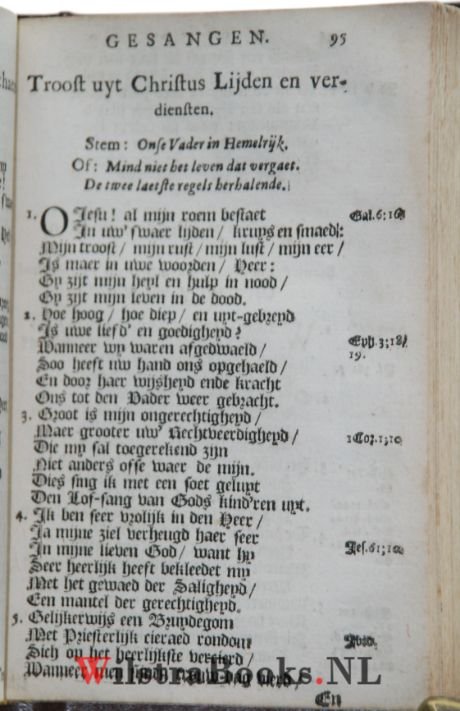 GESANGEN. 95
Troost uyt Christus Lijden en ver-
diensten.
Stem: Onse Vader in Hemelrijk.
Of: Mind niet het leven dat vergaet.
De twee laetste regels herhalende.
1. O Jesu! al mijn roem bestaet Gal. 6:
In uw' swaer lijden / kruys en smaed:
Mijn troost / mijn rust / mijn lust / mijn eer /
Is maer in uwe woorden / Heer:
Gy zijt mijn heyl en hulp in nood /
Gy zijt mijn leven in de dood.
2. Hoe hoog / hoe diep / en uyt-gebreyd
Is uwe lief'd' en goedigheyd?
Wanneer wy waren afgedwaeld / Eph. 3:18/
19.
Soo heeft uw hand ons opgehaeld /
En door haer wijsheyd ende kracht
Ons tot den Vader weer gebracht.
3. Groot is mijn ongerechtigheyd /
Maer grooter uw' Rechtveerdigheyd / 1 Cor. 1:
Die my sal toegerekend zijn
Niet anders offe waer de mijn.
Dies sing ik met een soet geluyt
Den Lof-sang van Gods kind'ren uyt.
4. Ik ben seer vrolijk in den Heer /
Ja mijne ziel verheugd haer seer
In mijne lieven God / want hy Jes. 61:10
Seer heerlijk heeft bekleedet my
Met het gewaed der Saligheyd /
Een mantel der gerechtigheyd.
5. Gelijkerwijs een Bruydegom
Met Priesterlijk cieraed rondom
Sich op het heerlijkste vercierd /
Wanneer
En
WilstraBooks.NL